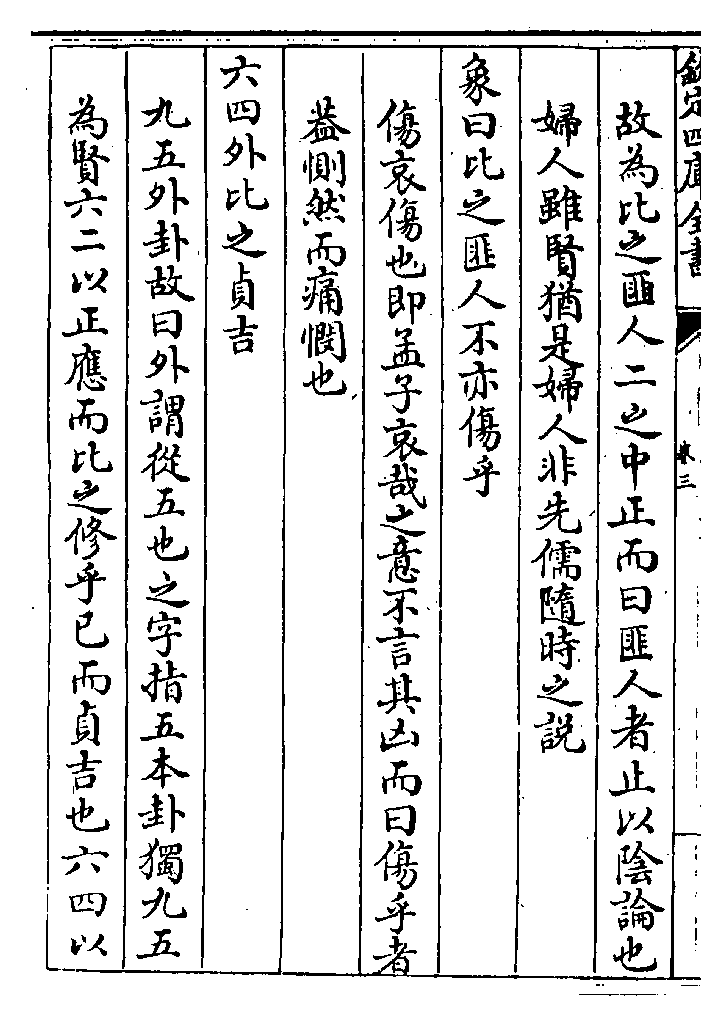 欽定四庫全書
卷三
故為比之匪人二之中正而曰匪人者止以陰論也
婦人雖賢猶是婦人非先儒隨時之説
象曰比之匪人不亦傷乎
傷哀傷也即孟子哀哉之意不言其凶而曰傷乎者
葢惻然而痛憫也
六四外比之貞吉
九五外卦故曰外謂從五也之字指五本卦獨九五
為賢六二以正應而比之修乎已而貞吉也六四以